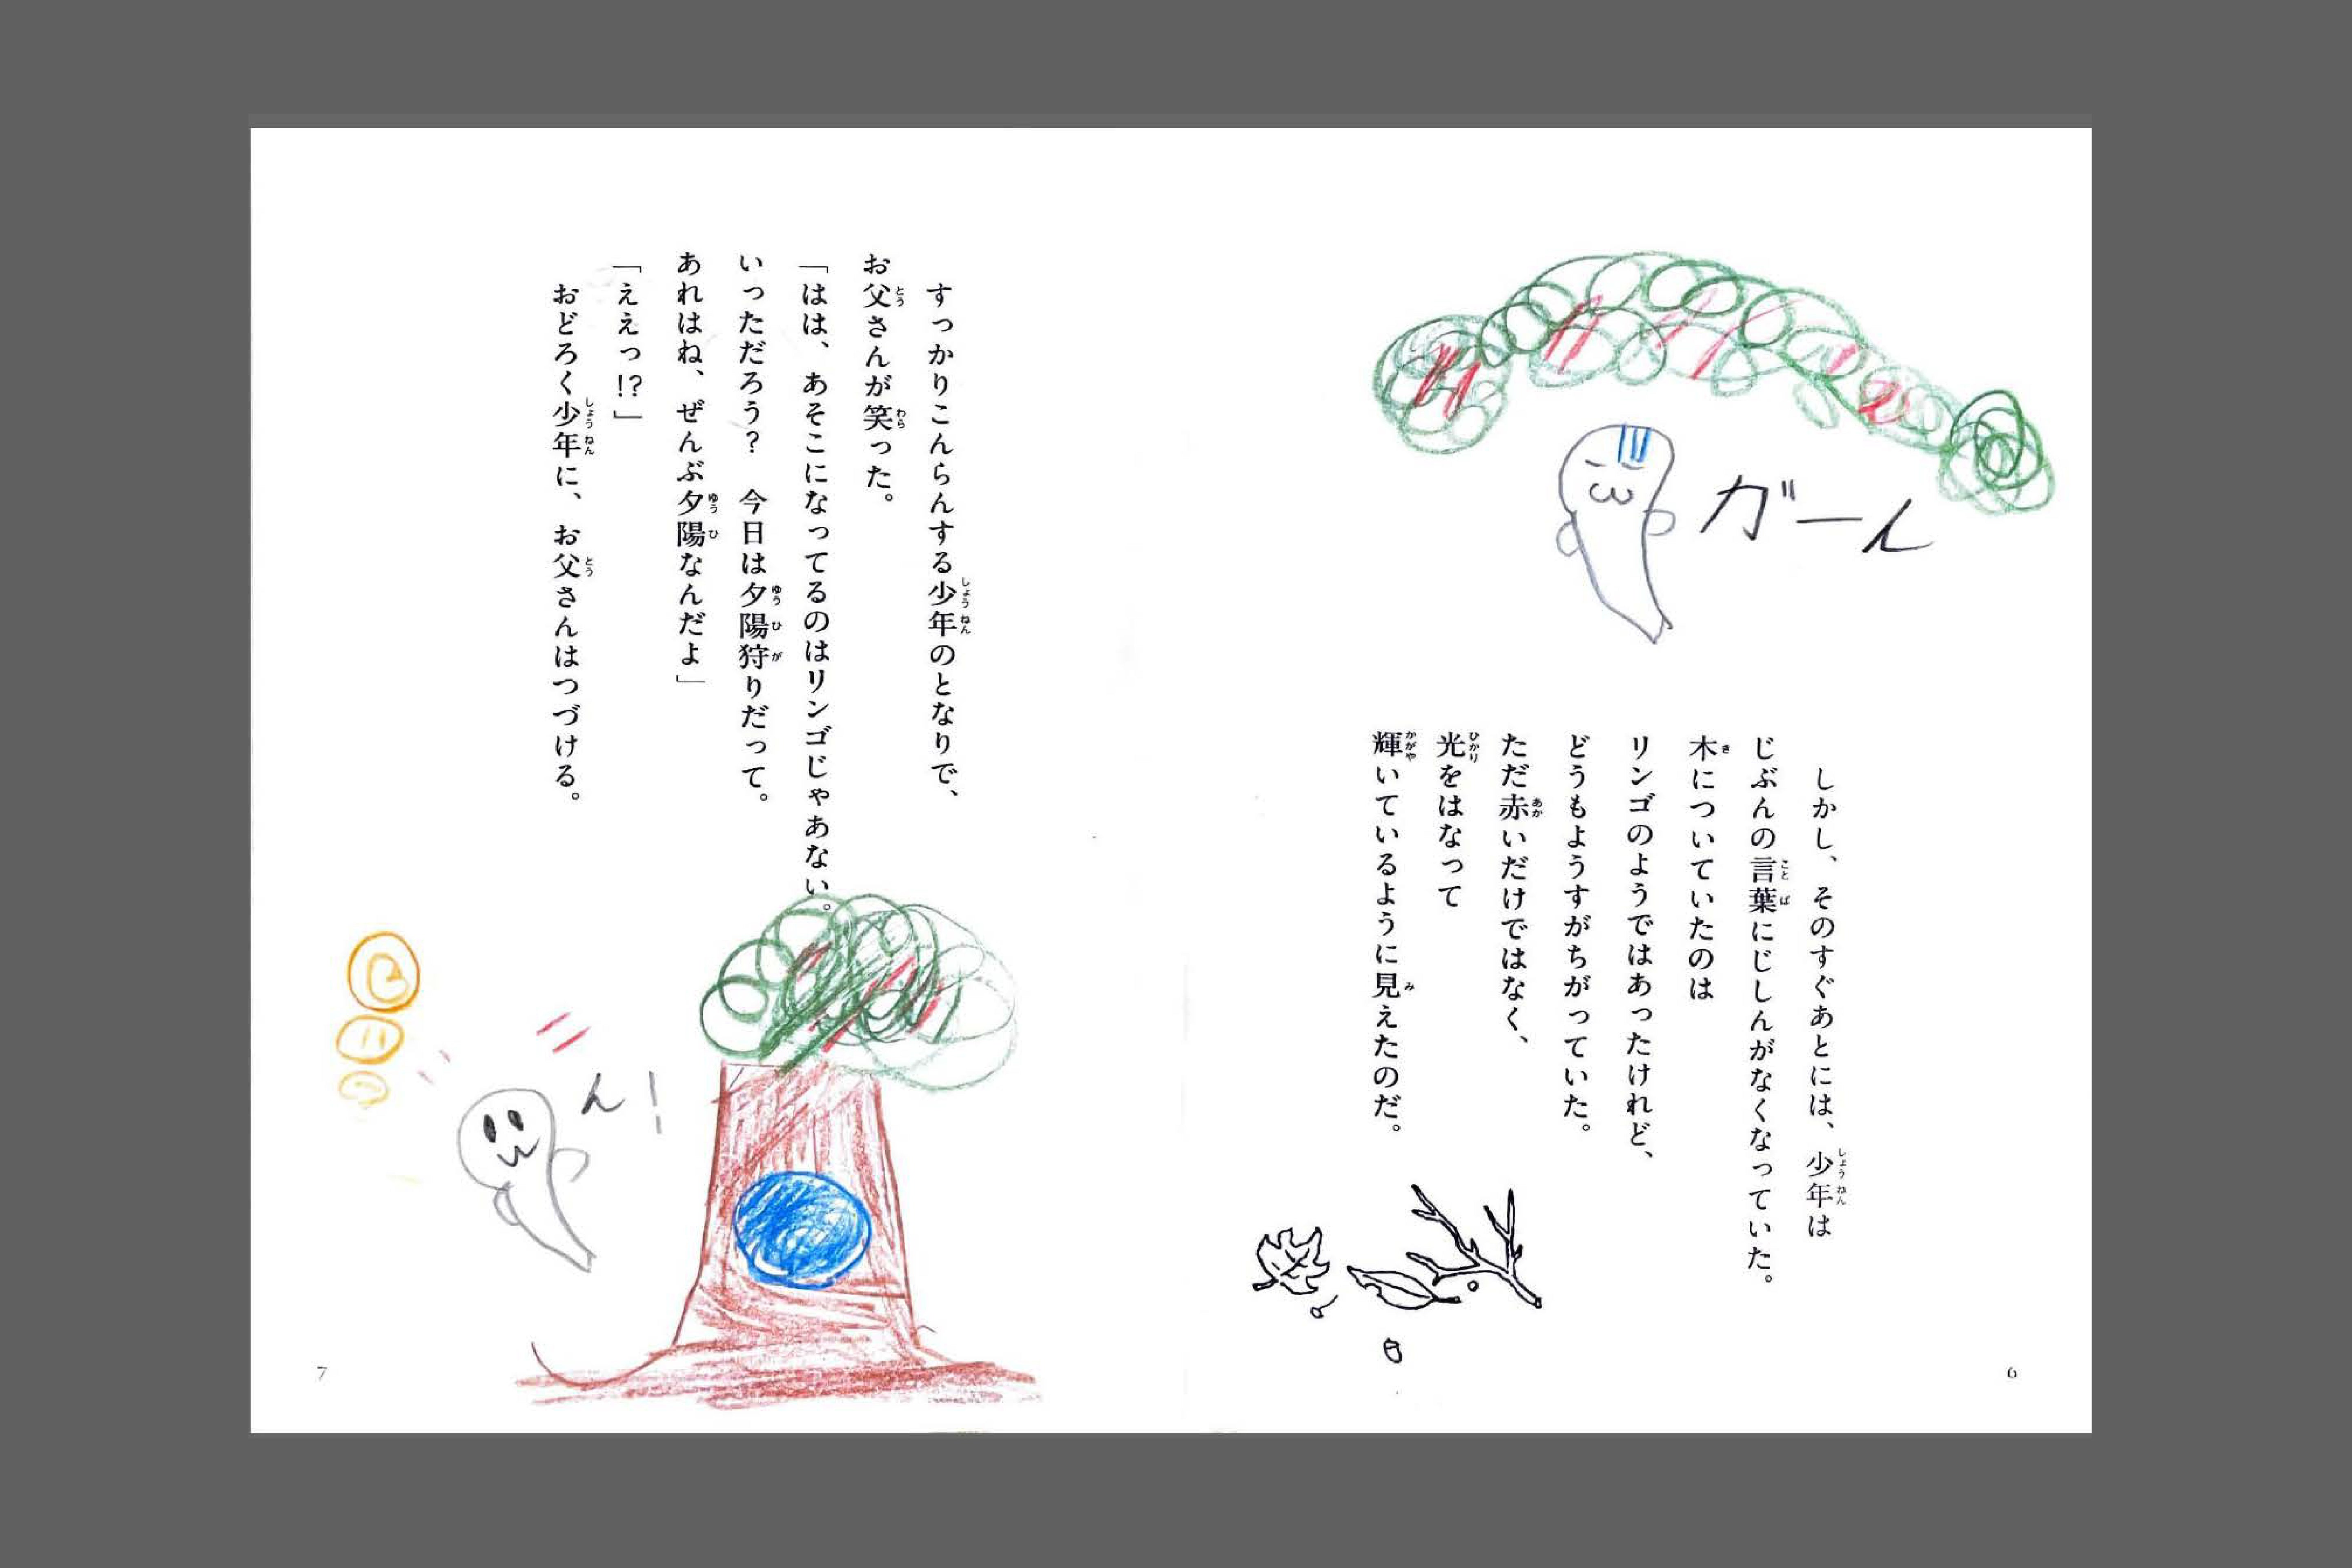 ガーん
しかし、そのすぐあとには、少年は
じぶんの言葉にじしんがなくなっていた。
木についていたのは
リンゴのようではあったけれど、
どうもようすがちがっていた。
ただ赤いだけではなく、
光をはなって
輝いているように見えたのだ。
6
すっかりこんらんする少年のとなりで、
お父さんが笑った。
「はは、あそこになってるのはリンゴじゃあない。
いっただろう？　今日は夕陽狩りだって。
あれはね、ぜんぶ夕陽なんだよ」
「ええっ!?」
おどろく少年に、お父さんはつづける。
ん!
7